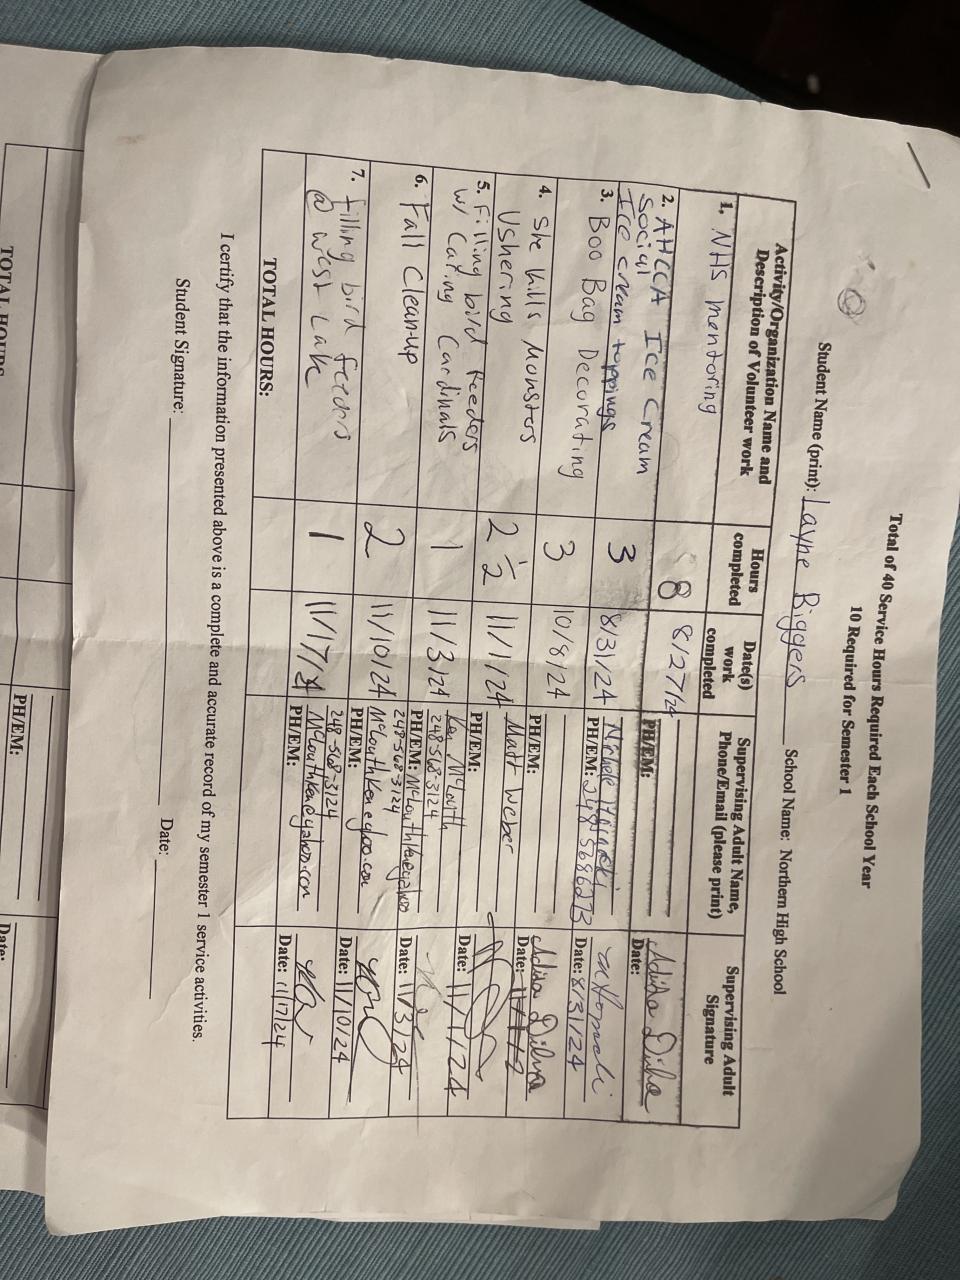 Total of 40 Service Hours Required Each School Year
10 Required for Semester 1
Student Name (print): Layne Biggers School Name: Northern High School
Activity/Organization Name and Description of Volunteer work
Hours completed
Date(s) work completed
Supervising Adult Name, Phone/Email (please print)
Supervising Adult Signature
1. NHS mentoring
8
8/27/24
PH/EM:
Date:
2. AHCCA Ice Cream
Social
Ice cream toppings
3
8/31/24
Nichole
PH/EM: 248 5686273
Date: 8/31/24
3. Boo Bag Decorating
3
10/8/24
PH/EM:
Date:
4. She kills Monsters
Ushering
2 1/2
11/1/24
Matt Weber
PH/EM:
Date: 11/1/24
5. Filling bird feeders
w/ Caring Cardinals
1
11/3/24
Ken McLouth
248-568-3124
PH/EM:
Date: 11/3/24
6. Fall Clean-up
2
11/10/24
248-568-3124
PH/EM:
Date: 11/10/24
7. filling bird feeders
@ West Lake
1
11/17/24
248-568-3124
PH/EM:
Date: 11/17/24
TOTAL HOURS:
I certify that the information presented above is a complete and accurate record of my semester 1 service activities.
Student Signature: Date:
TOTAL HOURS
PH/EM:
Date: